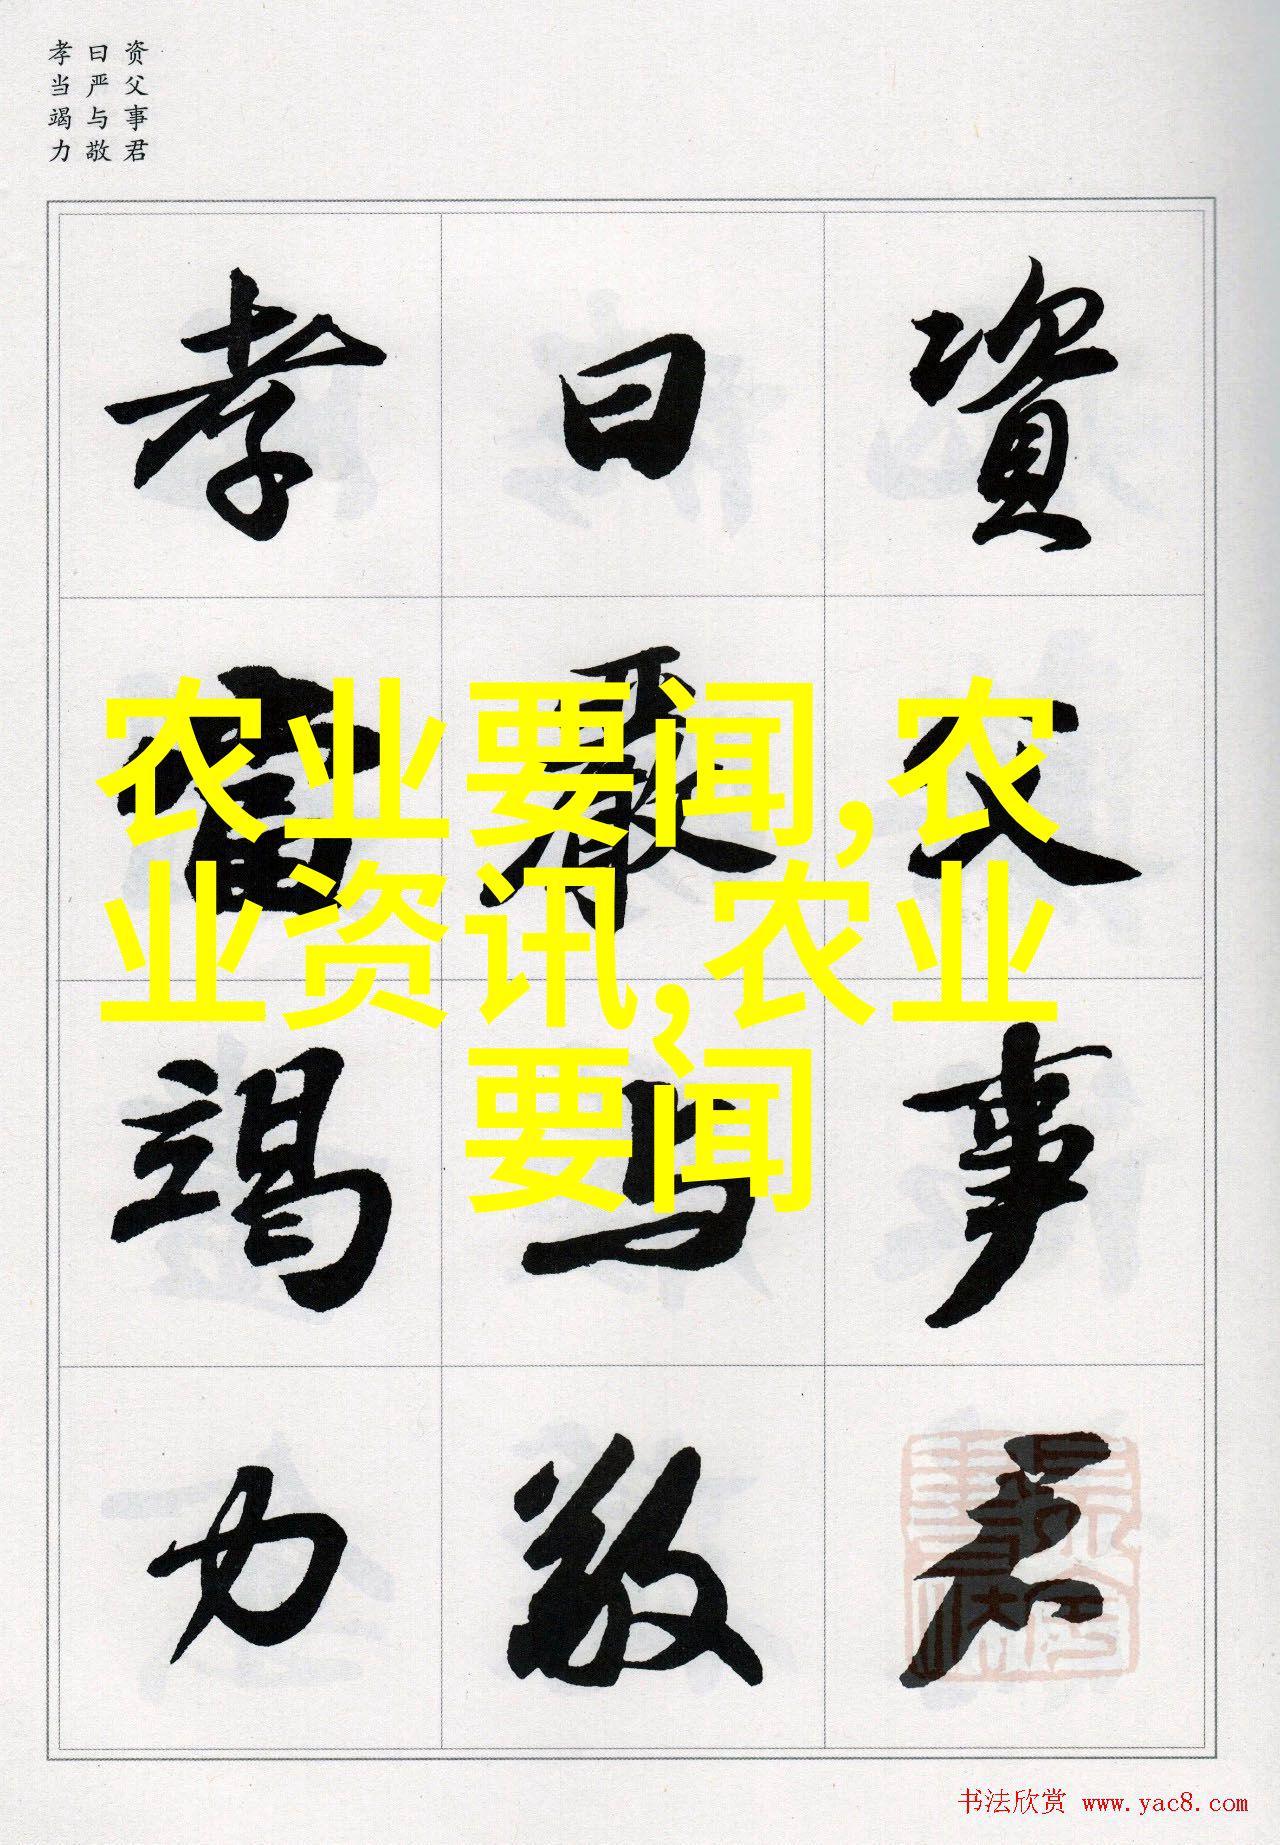 资父事君
曰严与敬
孝当竭力
資父事君
曰嚴与敬
孝當竭力
农业要闻,农
业资讯,农业
要闻
书法欣赏 www.yac8.com